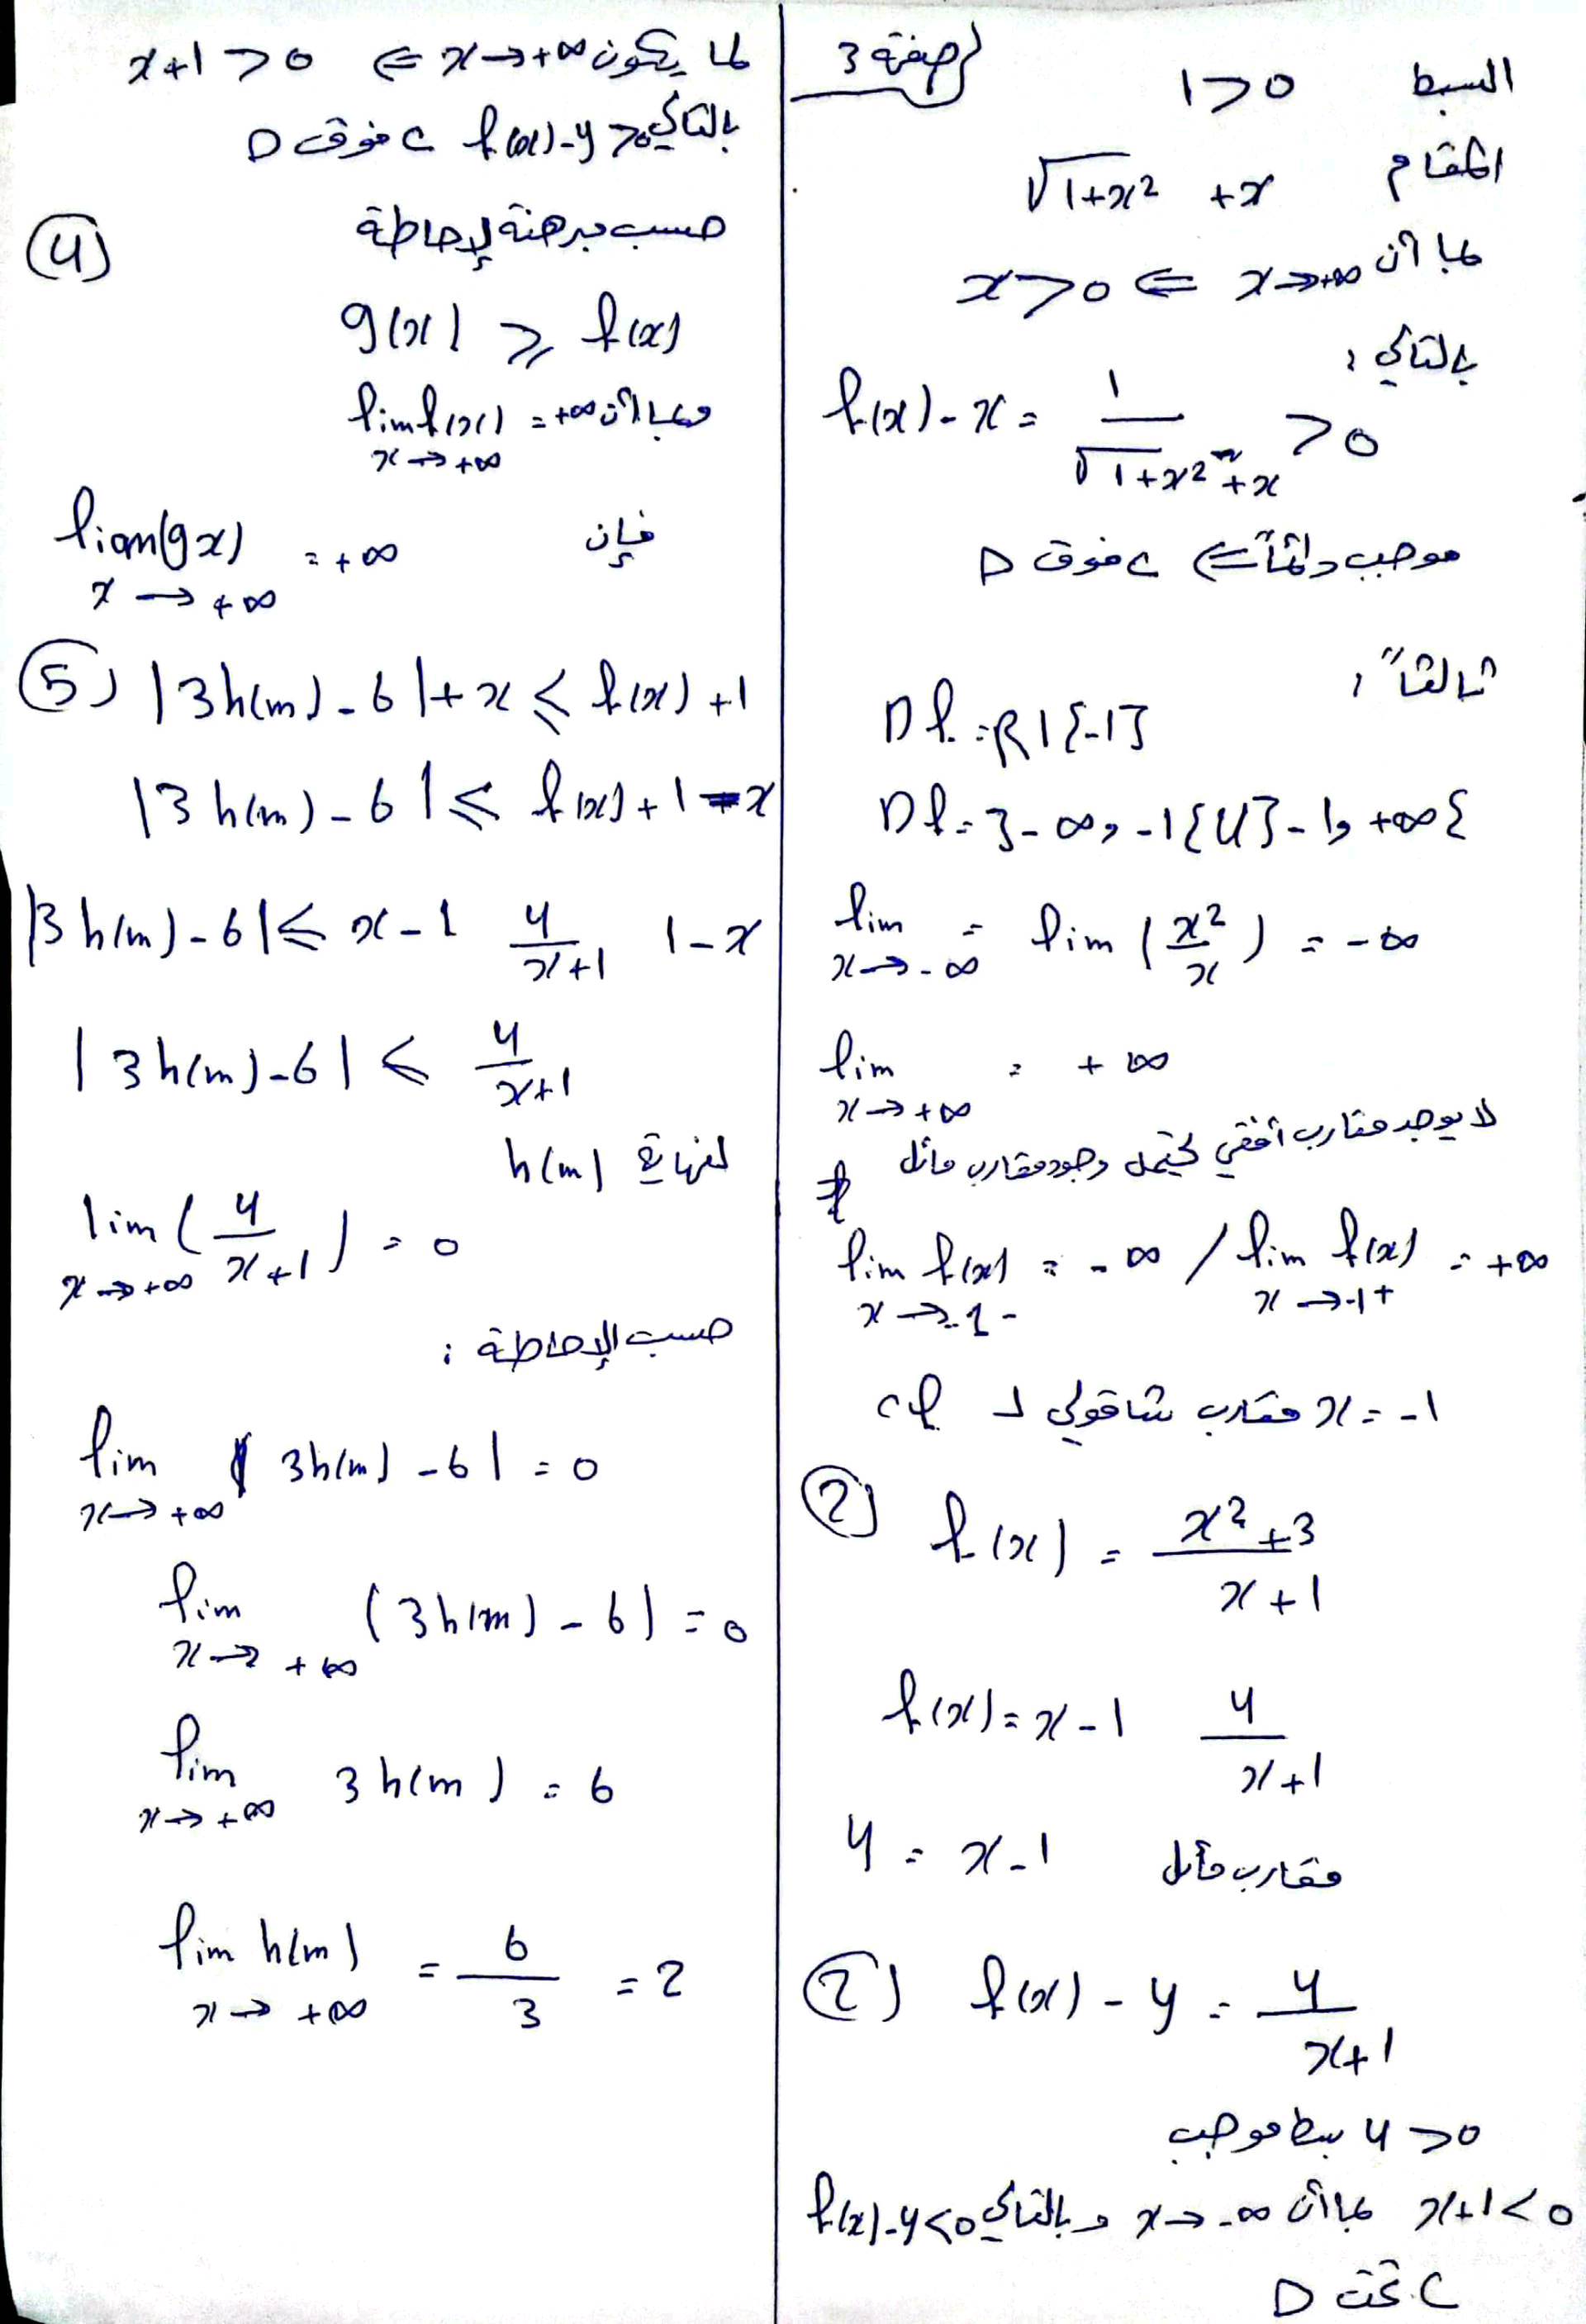 صفحة 3
البسط 1>0
المقام √1+x² +x
بما أن x→+∞ ⇐ x>0
بالتالي :
f(x)-x = 1/(√1+x² +x) >0
موجب دائماً ⇐ C فوق D
ثالثاً :
Df = R\{-1}
Df = ]-∞, -1[ U ]-1, +∞[
lim x→-∞ = lim (x²/x) = -∞
lim x→+∞ = +∞
لا يوجد مقارب أفقي يحتمل وجود مقارب مائل
lim f(x) x→-1- = -∞ / lim f(x) x→-1+ = +∞
x = -1 مقارب شاقولي لـ Cf
2) f(x) = (x²+3)/(x+1)
f(x) = x-1 4/(x+1)
y = x-1 مقارب مائل
2) f(x)-y = 4/(x+1)
4>0 بسط موجب
x+1<0 بما أن x→-∞ و بالتالي f(x)-y<0
C تحت D
لما يكون x→+∞ ⇐ x+1>0
بالتالي f(x)-y>0 C فوق D
4)
حسب مبرهنة الإحاطة
g(x) ≥ f(x)
وبما أن lim f(x) x→+∞ = +∞
فإن lim(gx) x→+∞ = +∞
5) |3h(m)-6|+x ≤ f(x)+1
|3h(m)-6| ≤ f(x)+1-x
|3h(m)-6| ≤ x-1 4/(x+1) 1-x
|3h(m)-6| ≤ 4/(x+1)
لنهاية h(m)
lim x→+∞ (4/(x+1)) = 0
حسب الإحاطة :
lim x→+∞ |3h(m)-6| = 0
lim x→+∞ (3h(m)-6) = 0
lim x→+∞ 3h(m) = 6
lim h(m) x→+∞ = 6/3 = 2